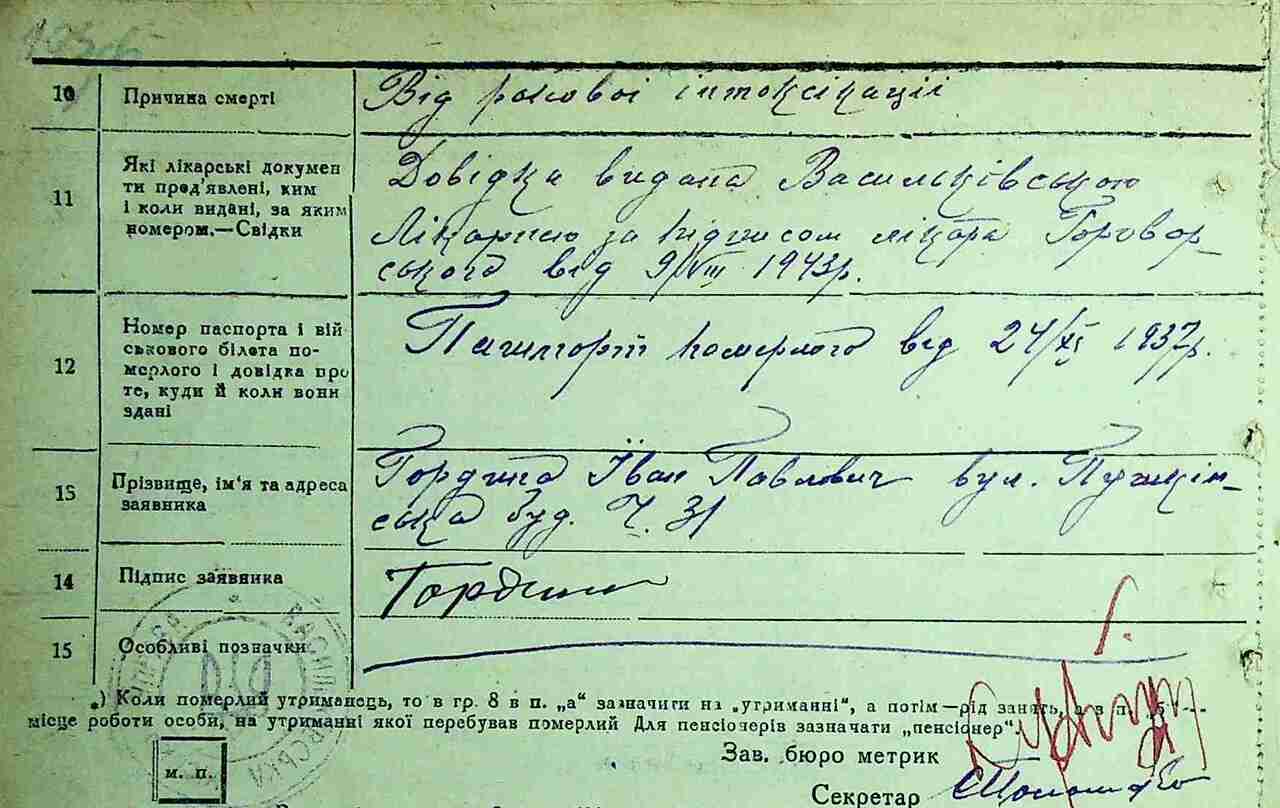 10 Причина смерті Від ракової інтоксікації
11 Які лікарські докумен
ти пред'явлені, ким
і коли видані, за яким
номером.—Свідки
Довідка видана Васильківською
Лікарнею за підписом лікара Говор-
ського від 9/VIII 1943р.
12 Номер паспорта і вій
ськового білета по-
мерлого і довідка про
те, куди й коли вони
здані
Пашпорт померлого від 24/XI 1937р.
13 Прізвище, ім'я та адреса
заявника
Гордина Іван Павлович вул. Пушкін-
ська буд. Ч. 31
14 Підпис заявника Гордина
15 Особливі позначки
*) Коли померлий утриманець, то в гр. 8 в п. „а" зазначити на „утриманні", а потім—рід занять, а в п.
місце роботи особи, на утриманні якої перебував померлий Для пенсіонерів зазначати „пенсіонер".
Зав. бюро метрик
м. п.
Секретар